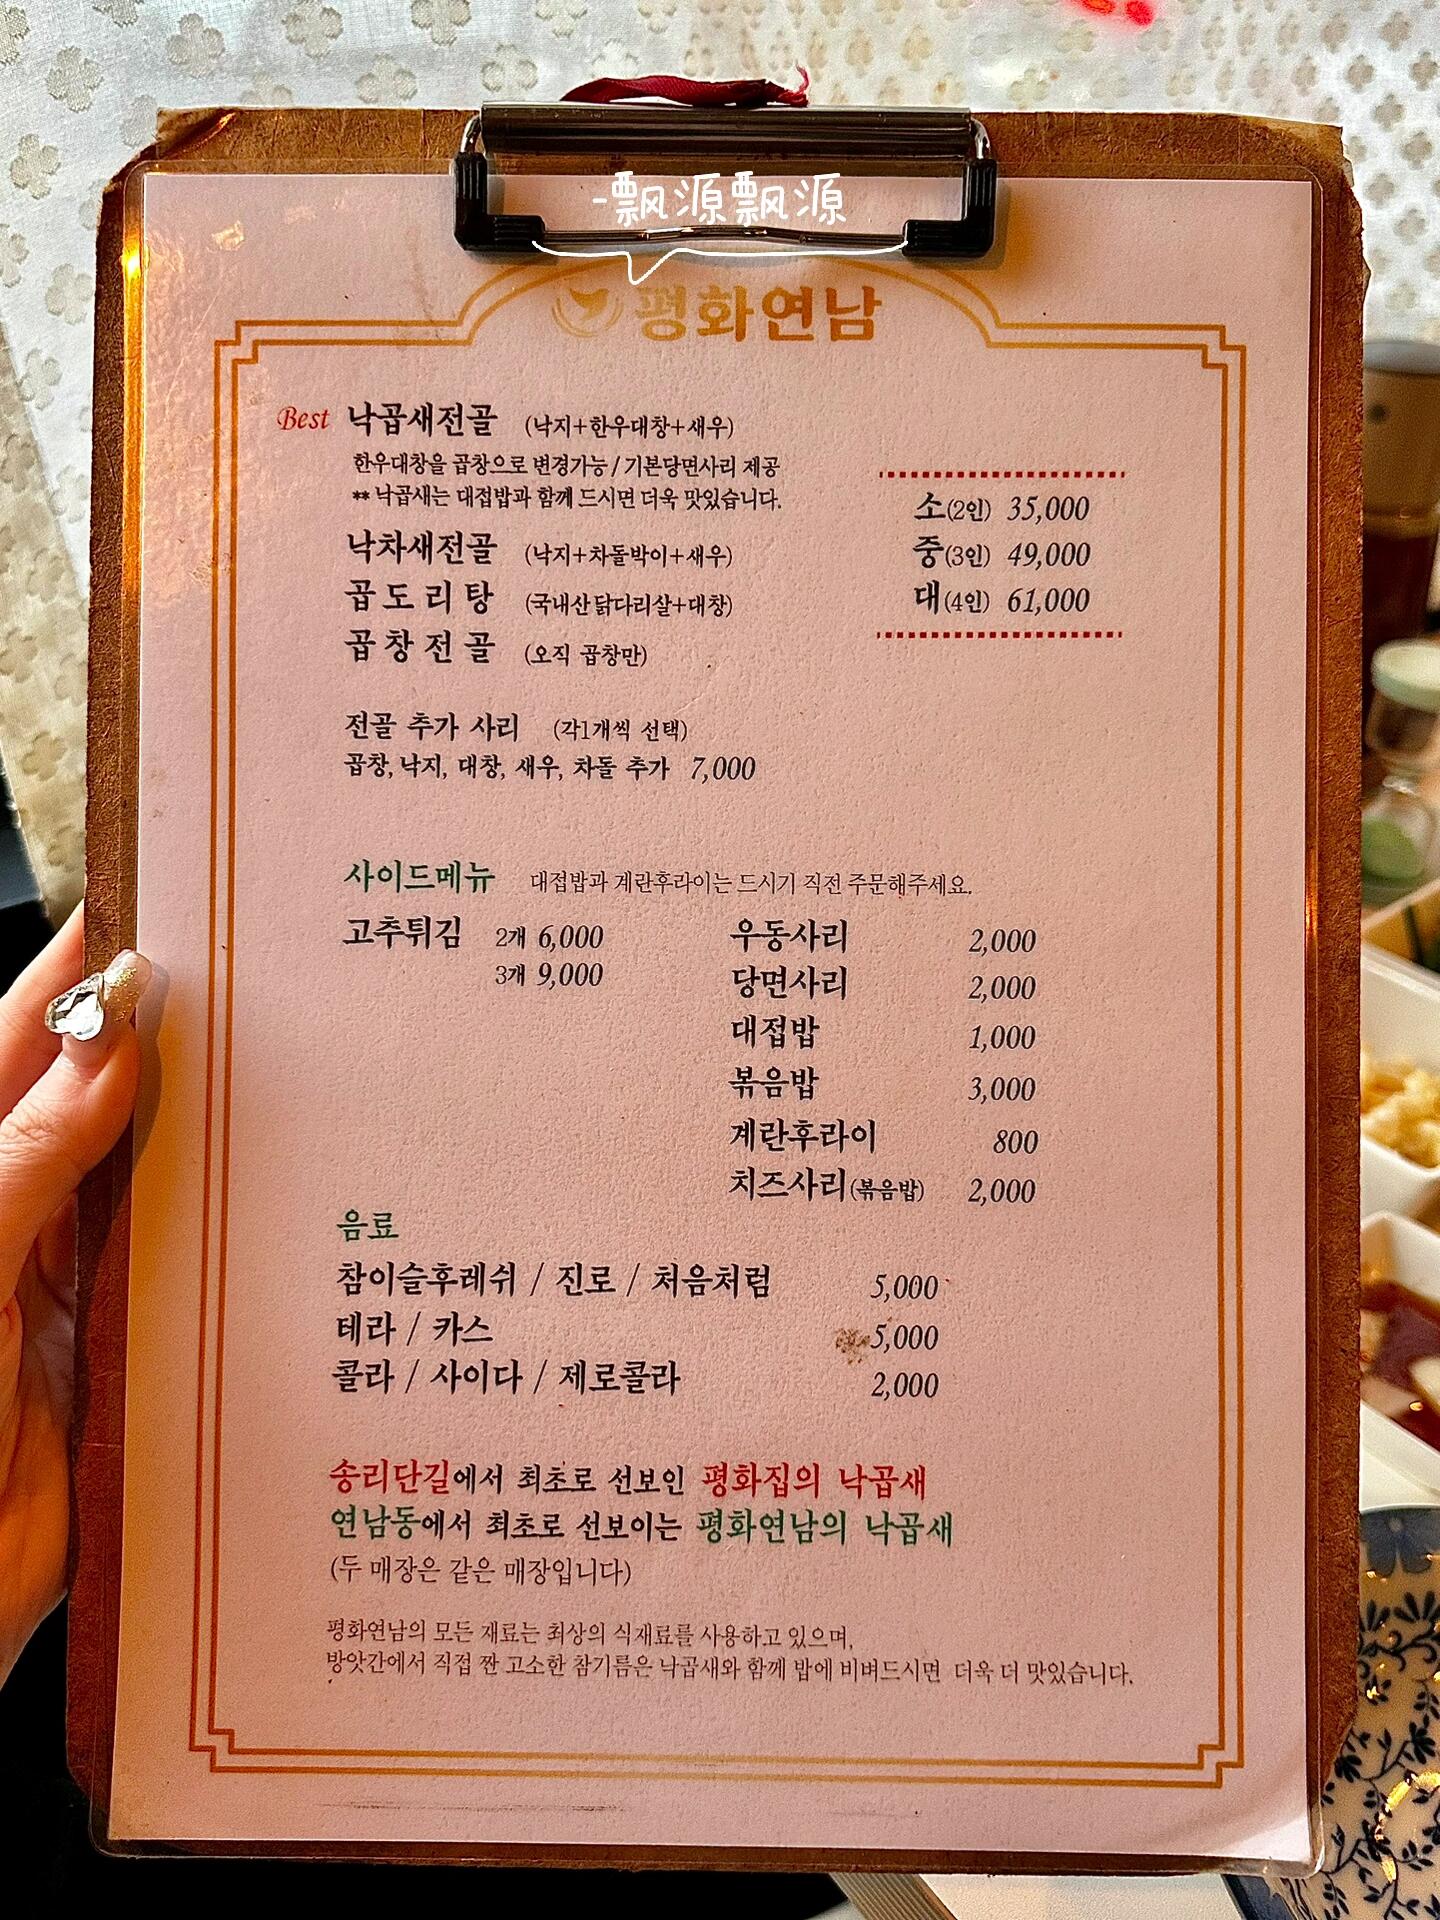 -飘源飘源
평화연남
Best 낙곱새전골 (낙지+한우대창+새우)
한우대창을 곱창으로 변경가능 / 기본당면사리 제공
** 낙곱새는 대접밥과 함께 드시면 더욱 맛있습니다.
낙차새전골 (낙지+차돌박이+새우)
곱도리탕 (국내산닭다리살+대창)
곱창전골 (오직 곱창만)
소(2인) 35,000
중(3인) 49,000
대(4인) 61,000
전골 추가 사리 (각1개씩 선택)
곱창, 낙지, 대창, 새우, 차돌 추가 7,000
사이드메뉴 대접밥과 계란후라이는 드시기 직전 주문해주세요.
고추튀김 2개 6,000
3개 9,000
우동사리 2,000
당면사리 2,000
대접밥 1,000
볶음밥 3,000
계란후라이 800
치즈사리(볶음밥) 2,000
음료
참이슬후레쉬 / 진로 / 처음처럼 5,000
테라 / 카스 5,000
콜라 / 사이다 / 제로콜라 2,000
송리단길에서 최초로 선보인 평화집의 낙곱새
연남동에서 최초로 선보이는 평화연남의 낙곱새
(두 매장은 같은 매장입니다)
평화연남의 모든 재료는 최상의 식재료를 사용하고 있으며,
방앗간에서 직접 짠 고소한 참기름은 낙곱새와 함께 밥에 비벼드시면 더욱 더 맛있습니다.